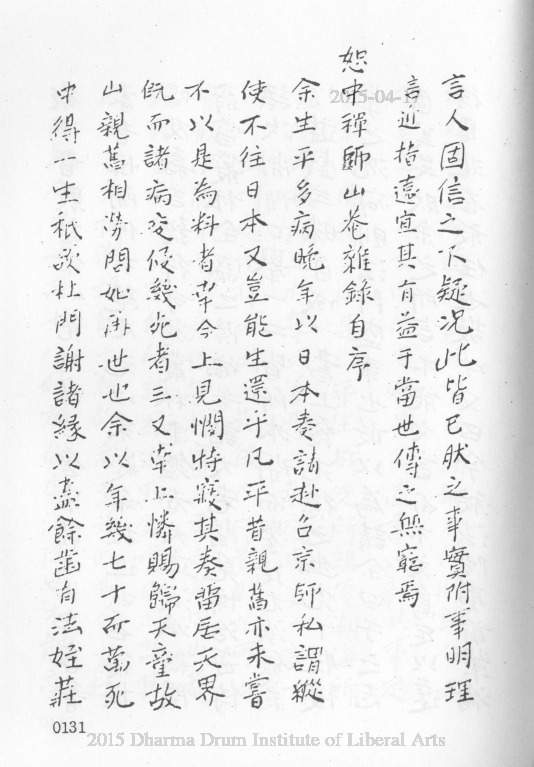 言人固信之不疑況此皆已狀之事實附事明理
言近指遠宜其有益于當世傳之無窮焉
恕中禪師山菴雜錄自序
余生平多病晚年以日本奏請赴召京師私謂縱
使不往日本又豈能生還乎凡平昔親舊亦未嘗
不以是為料者幸今上見憫特寢其奏留居天界
既而諸病交侵幾死者三又幸上憐賜歸天童故
山親舊相勞問如隔世也余以年幾七十而萬死
中得一生秖欲杜門謝諸緣以盡餘齒有法姪莊
0131
2015-04-17
2015 Dharma Drum Institute of Liberal Arts